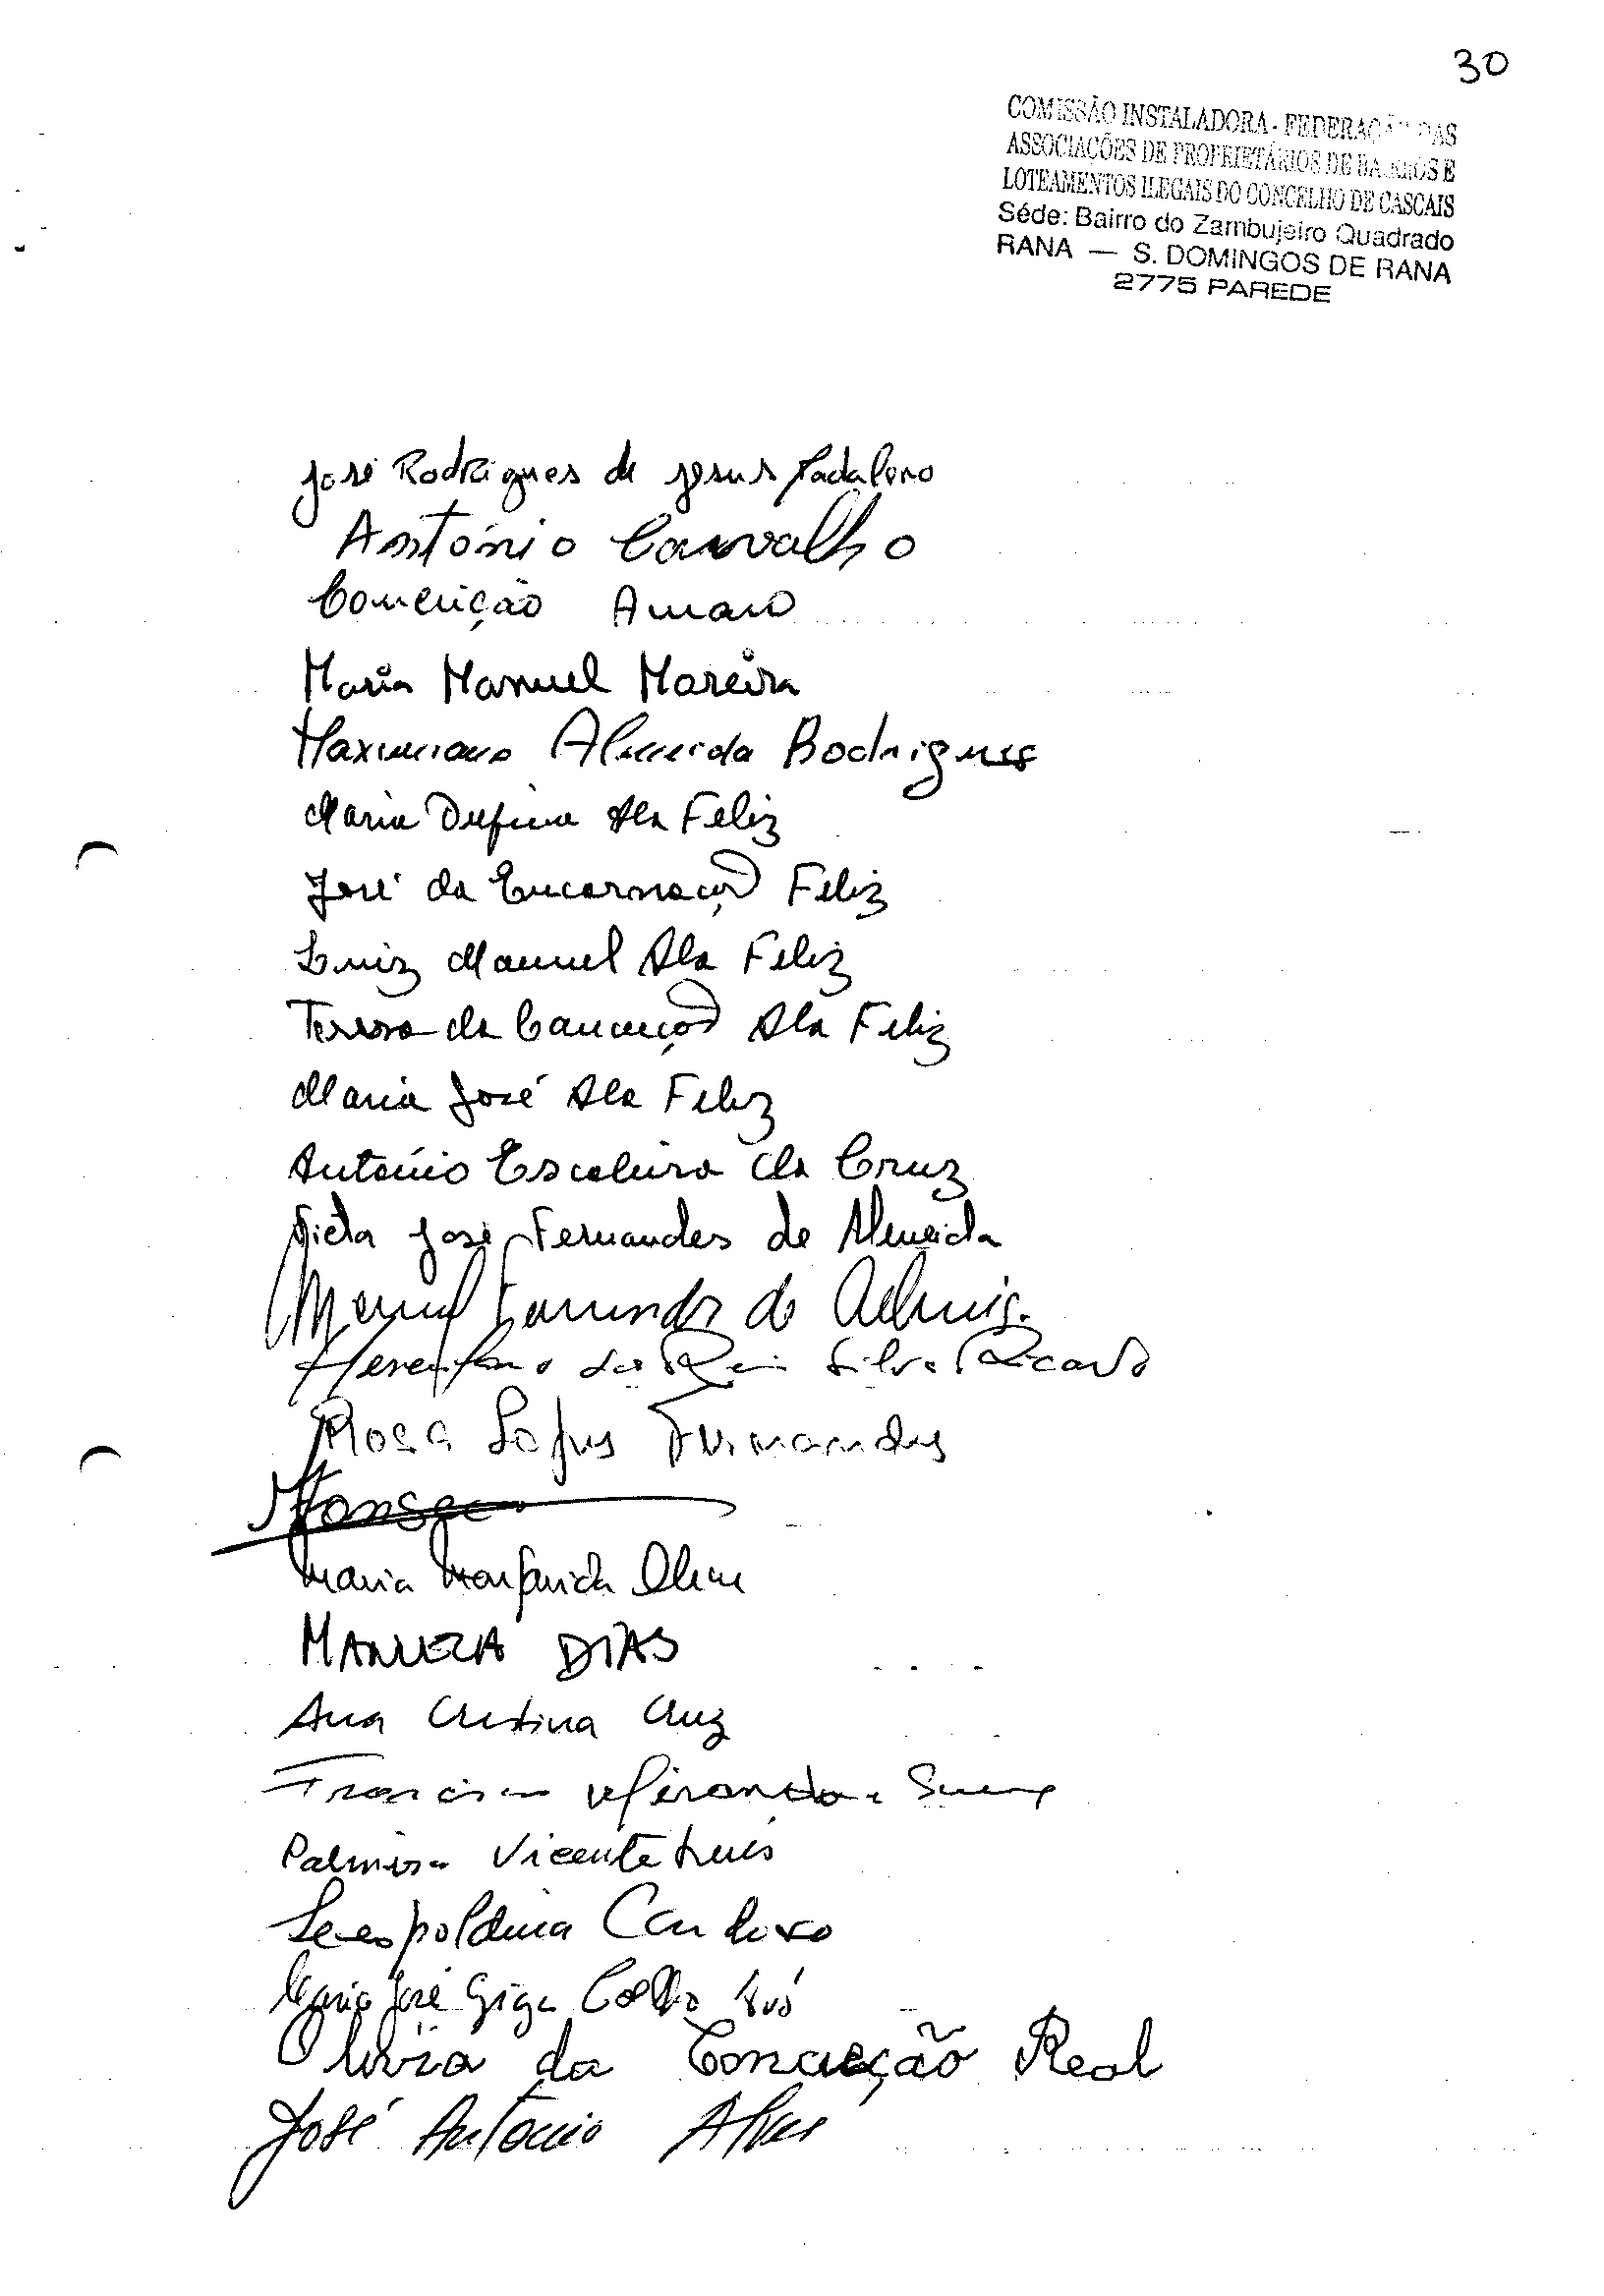 30
COMISSÃO INSTALADORA - FEDERAÇÃO DAS
ASSOCIACÕES DE PROPRIETÁRIOS DE BAIRROS E
LOTEAMENTOS ILEGAIS DO CONCELHO DE CASCAIS
Séde: Bairro do Zambujeiro Quadrado
RANA — S. DOMINGOS DE RANA
2775 PAREDE
José Rodrigues de Jesus
António Carvalho
Conceição Amaro
Maria Manuel Moreira
Maximiano Almeida Rodrigues
Maria Ala Feliz
José da Encarnação Feliz
Luiz Manuel Ala Feliz
Teresa da Conceição Ala Feliz
Maria José Ala Feliz
António Escaleira da Cruz
José Fernandes de Almeida
Manuel de
Silva Ricardo
Rosa Lopes Fernandes
Fonseca
Maria Margarida
MANUELA DIAS
Ana Cristina Cruz
Miranda
Palmira Vicente Luís
Leopoldina Cardoso
Maria José Giga Coelho
Olivia da Conceição Real
José António Alves